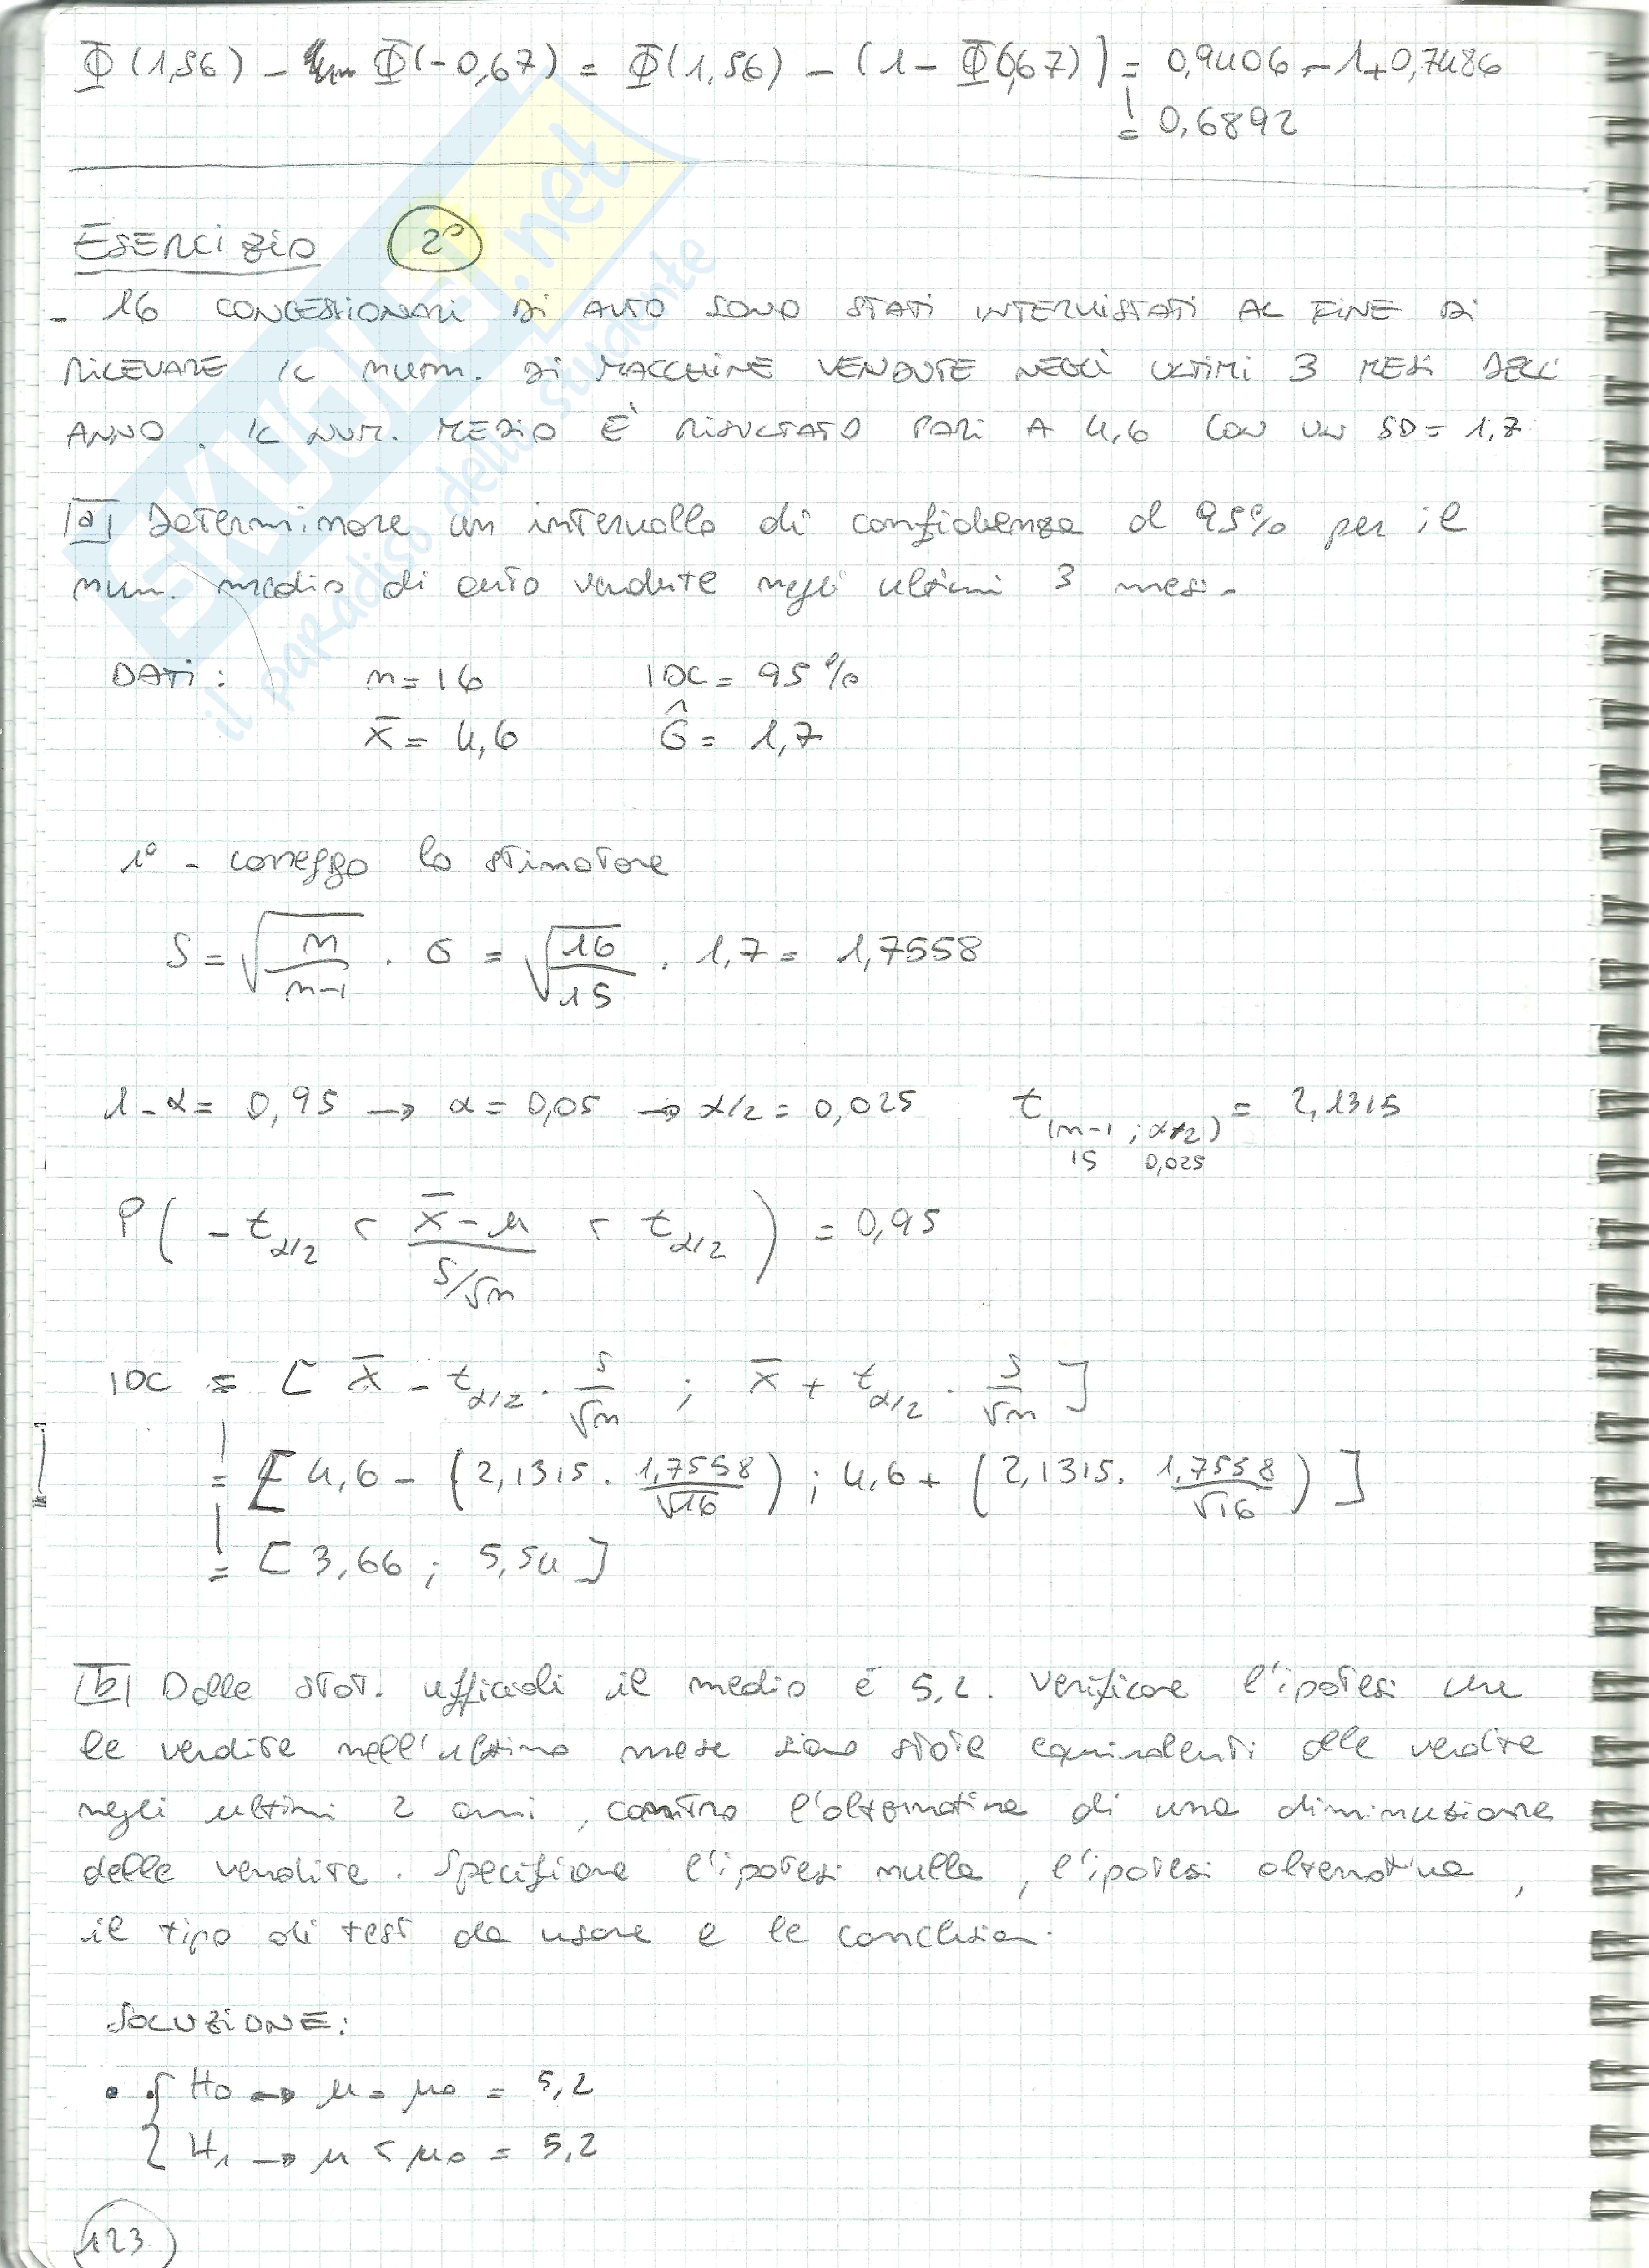 Φ(1,56) - Φ(-0,67) = Φ(1,56) - (1 - Φ(0,67)] = 0,9406 - 1 + 0,7486
= 0,6892
ESERCIZIO 2°
- 16 CONCESSIONARI DI AUTO SONO STATI INTERVISTATI AL FINE DI
RILEVARE IL NUM. DI MACCHINE VENDUTE NEGLI ULTIMI 3 MESI DELL'
ANNO. IL NUM. MEDIO È RISULTATO PARI A 4,6 CON UN SD = 1,7
|a| Determinare un intervallo di confidenza al 95% per il
num. medio di auto vendute negli ultimi 3 mesi.
DATI: n = 16 IDC = 95%
x̄ = 4,6 σ̂ = 1,7
1° - correggo lo stimatore
S = √(n/(n-1)) · σ = √(16/15) · 1,7 = 1,7558
1-α = 0,95 → α = 0,05 → α/2 = 0,025 t(n-1 ; α/2) = 2,1315
15 0,025
P( -t α/2 < (x̄ - μ)/(S/√n) < t α/2 ) = 0,95
IDC = [ x̄ - t α/2 · S/√n ; x̄ + t α/2 · S/√n ]
= [ 4,6 - (2,1315 · 1,7558/√16) ; 4,6 + (2,1315 · 1,7558/√16) ]
= [ 3,66 ; 5,54 ]
|b| Dalle stat. ufficiali il medio è 5,2. Verificare l'ipotesi che
le vendite nell'ultimo mese siano state equivalenti alle vendite
negli ultimi 2 anni, contro l'alternativa di una diminuzione
delle vendite. Specificare l'ipotesi nulla, l'ipotesi alternativa,
il tipo di test da usare e le conclusioni.
SOLUZIONE:
• { H0 → μ = μ0 = 5,2
{ H1 → μ < μ0 = 5,2
123
SKUOLA.net
il paradiso dello studente